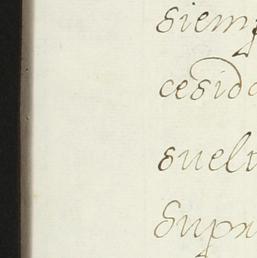 siemp
cesida
suelt
supri